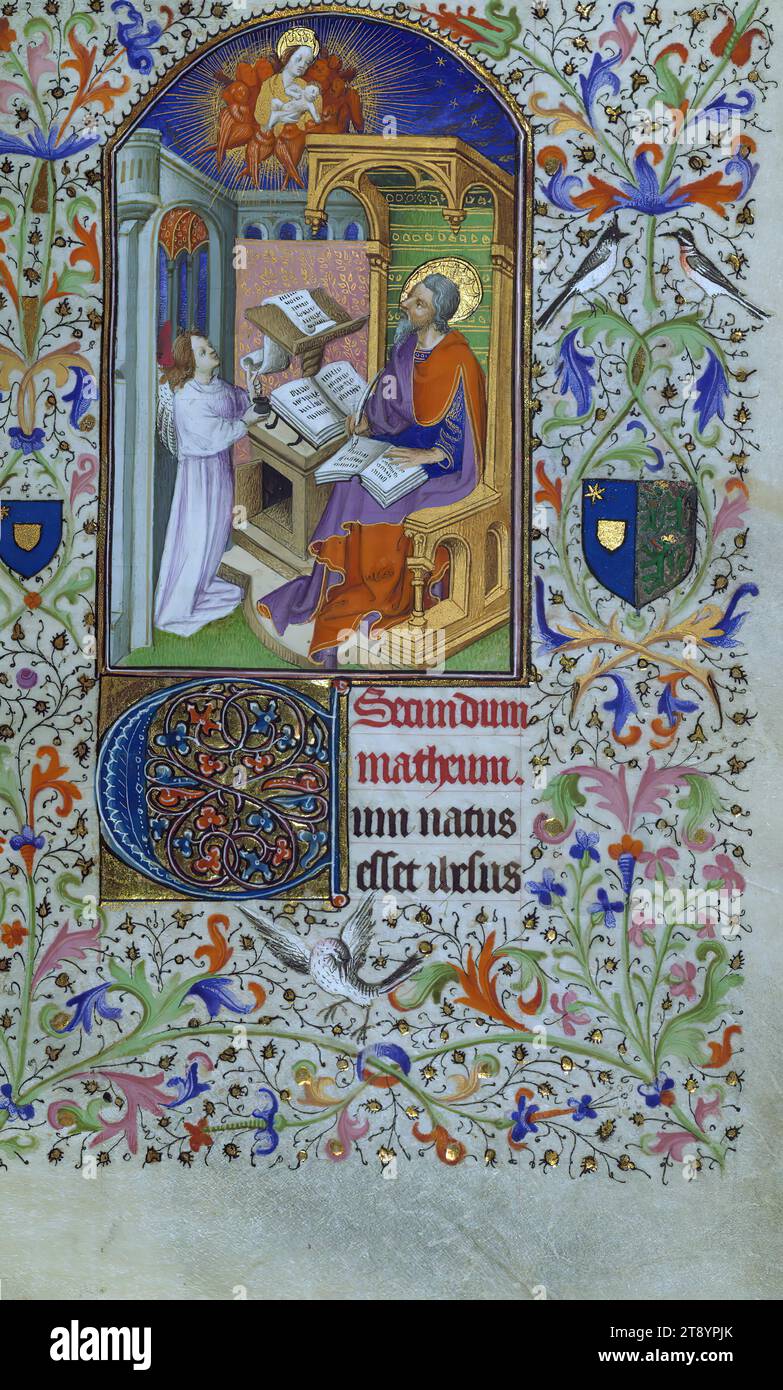 Secundum
matheum.
Cum natus
esset ihesus
alamy
Image ID: 2T8YPJK
www.alamy.com